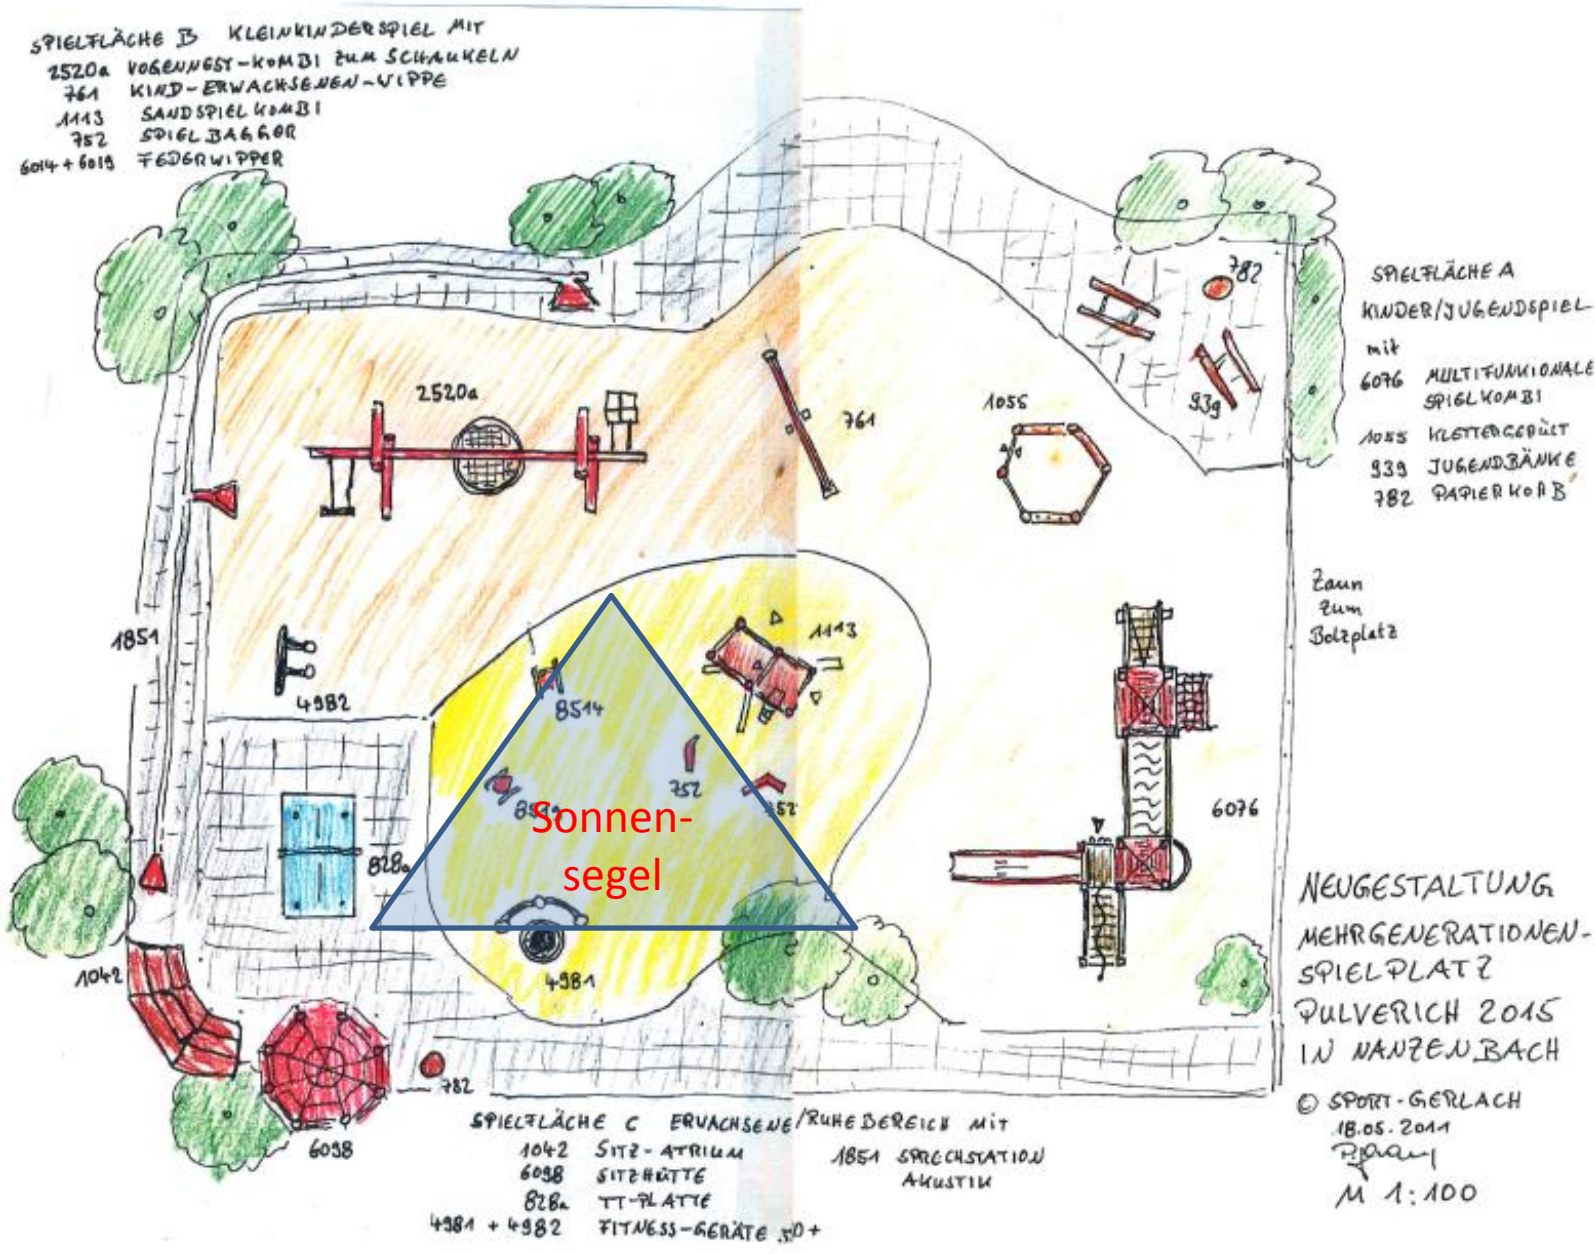 SPIELFLÄCHE B KLEINKINDERSPIEL MIT
2520a VOGENNEST-KOMBI ZUM SCHAUKELN
761 KIND-ERWACHSENEN-WIPPE
1113 SANDSPIELKOMBI
752 SPIELBAGGER
6014 + 6019 FEDERWIPPER
782
SPIELFLÄCHE A
KINDER/JUGENDSPIEL
mit
6076 MULTIFUNKIONALE
SPIELKOMBI
1055 KLETTERGERÜST
939 JUGENDBÄNKE
782 PAPIERKORB
939
2520a
761
1055
Zaun
zum
Bolzplatz
1851
1113
4982
8514
752
752
Sonnen-
segel
828a
6076
4981
1042
NEUGESTALTUNG
MEHRGENERATIONEN-
SPIELPLATZ
PULVERICH 2015
IN NANZENBACH
© SPORT-GERLACH
18.05.2011
M 1:100
782
6098
SPIELFLÄCHE C ERWACHSENE/RUHEBEREICH MIT
1042 SITZ-ATRIUM
6098 SITZHÜTTE
828a TT-PLATTE
4981 + 4982 FITNESS-GERÄTE 50+
1851 SPRECHSTATION
AKUSTIK